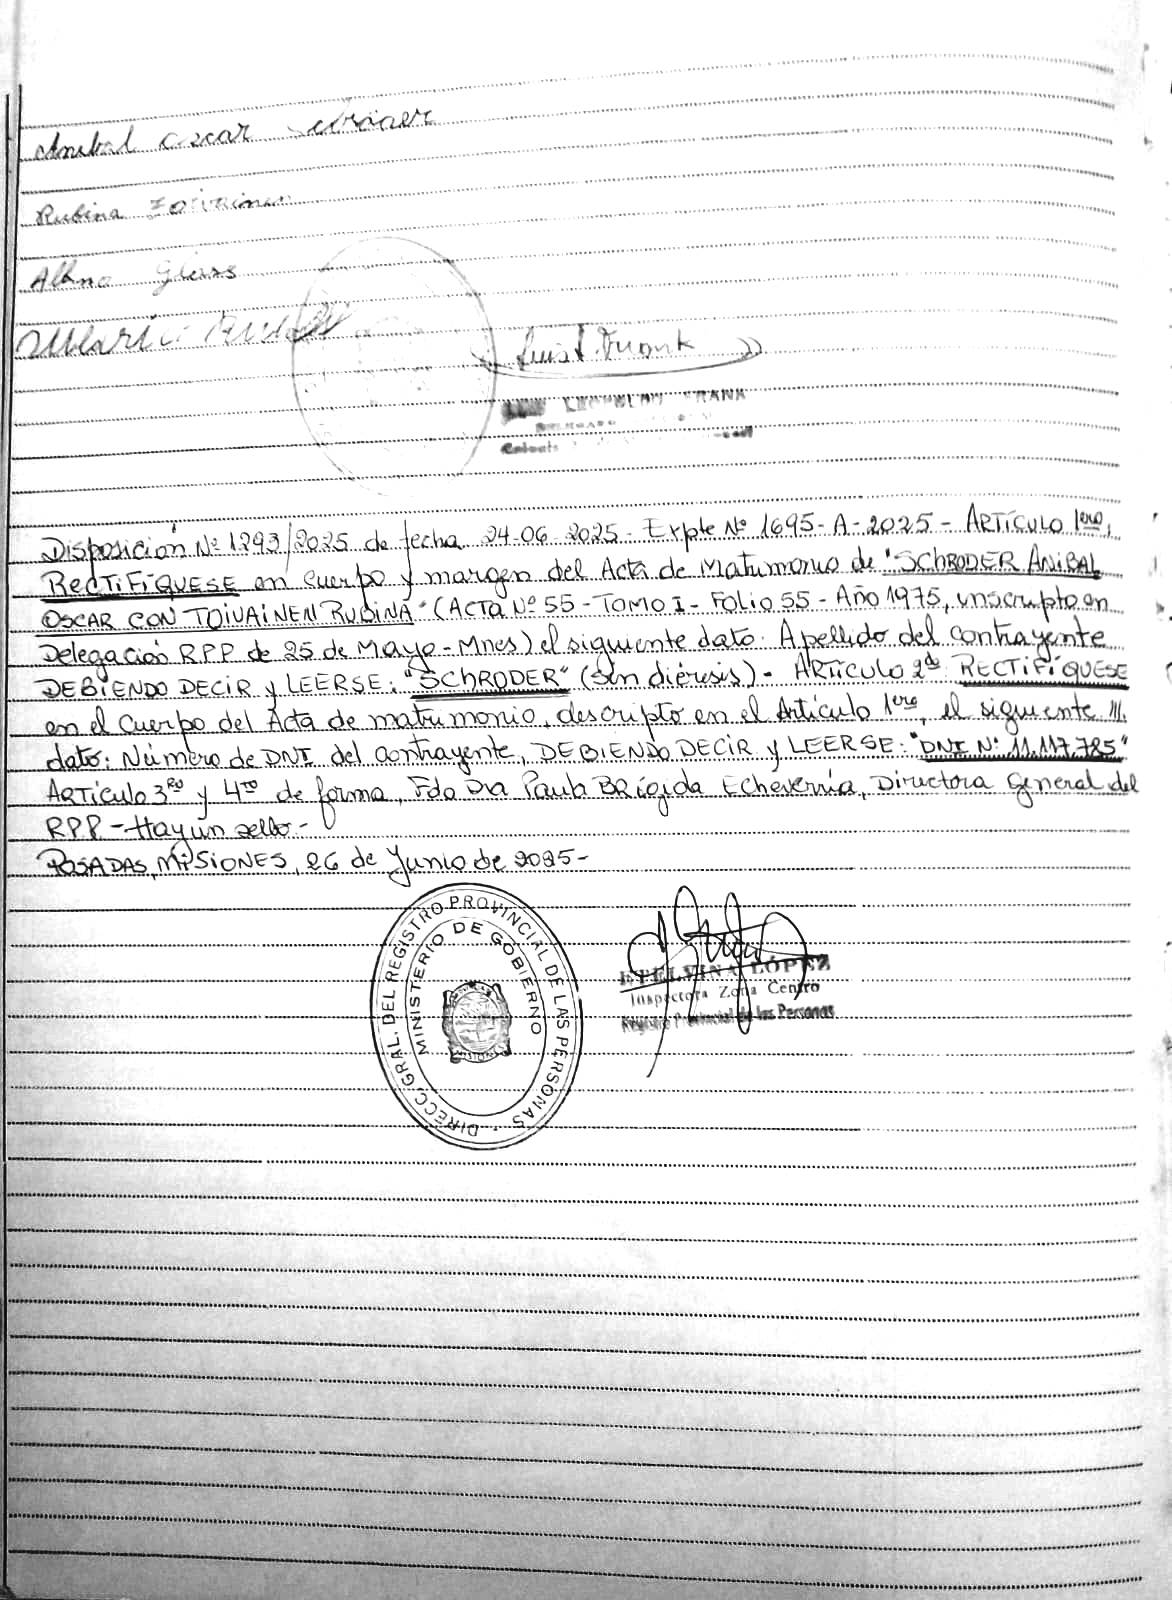 Anibal Oscar
Rubina
Albino Glass
Luis L. Frank
LEOPOLDO FRANK
DELEGADO
Disposición Nº 1293/2025 de fecha 24-06-2025- Expte Nº 1695-A-2025- ARTÍCULO 1ero,
RECTIFÍQUESE en cuerpo y margen del Acta de Matrimonio de "SCHRODER ANIBAL
OSCAR CON TOIVAINEN RUBINA" (ACTA Nº 55 - TOMO I - Folio 55 - Año 1975, inscripto en
Delegación RPP de 25 de Mayo - Mnes) el siguiente dato: Apellido del contrayente
DEBIENDO DECIR y LEERSE: "SCHRODER" (sin diéresis)- ARTÍCULO 2do RECTIFÍQUESE
en el cuerpo del Acta de matrimonio, descripto en el Artículo 1ero, el siguiente ///.
dato: Número de DNI del contrayente, DEBIENDO DECIR y LEERSE: "DNI Nº 11.117.785"
ARTÍCULO 3RO y 4TO de forma, Fdo Dra Paula BRígida Echeverria, Directora General del
RPP - Hay un sello -
POSADAS, MISIONES, 26 de Junio de 2025-
DIRECC. GRAL. DEL REGISTRO PROVINCIAL DE LAS PERSONAS
MINISTERIO DE GOBIERNO
MISIONES
ETELVINA LÓPEZ
Inspectora Zona Centro
Registro Provincial de las Personas